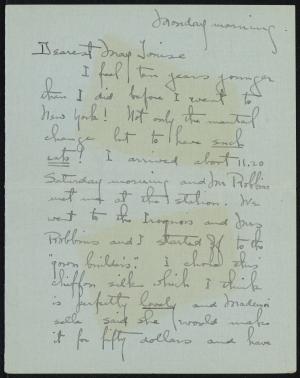 Monday morning.
Dearest May Louise
I feel ten years younger
than I did before I went to
New York! Not only the mental
change but to have such
eats! I arrived about 11.20
Saturday morning and Mr Robbins
met me at the station. We
went to the Iroquois and Mrs
Robbins and I started off to the
"gown builder's". I chose this
chiffon silk which I think
is perfectly lovely and Mademoi
selle said she would make
it for fifty dollars and have